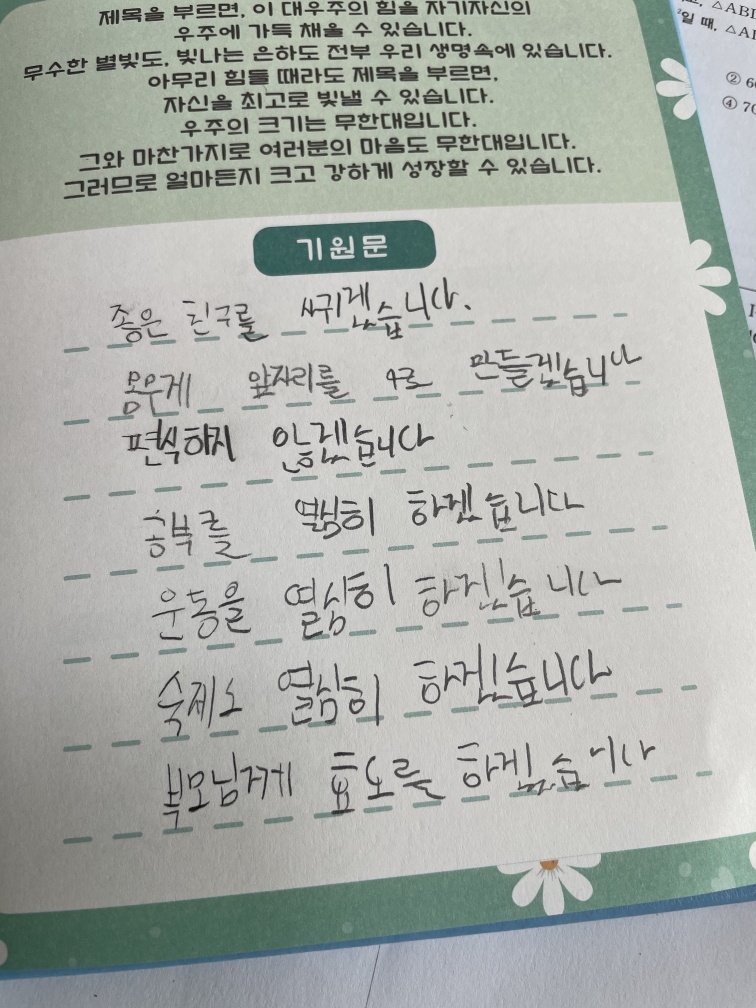 제목을 부르면, 이 대우주의 힘을 자기자신의
우주에 가득 채울 수 있습니다.
무수한 별빛도, 빛나는 은하도 전부 우리 생명속에 있습니다.
아무리 힘들 때라도 제목을 부르면,
자신을 최고로 빛낼 수 있습니다.
우주의 크기는 무한대입니다.
그와 마찬가지로 여러분의 마음도 무한대입니다.
그러므로 얼마든지 크고 강하게 성장할 수 있습니다.
기원문
좋은 친구를 사귀겠습니다.
몸무게 앞자리를 4로 만들겠습니다
편식하지 안하겠습니다
공부를 열심히 하겠습니다
운동을 열심히 하겠습니다
숙제도 열심히 하겠습니다
부모님께 효도를 하겠습니다
△ABI
일 때, △AI
② 6
④ 70